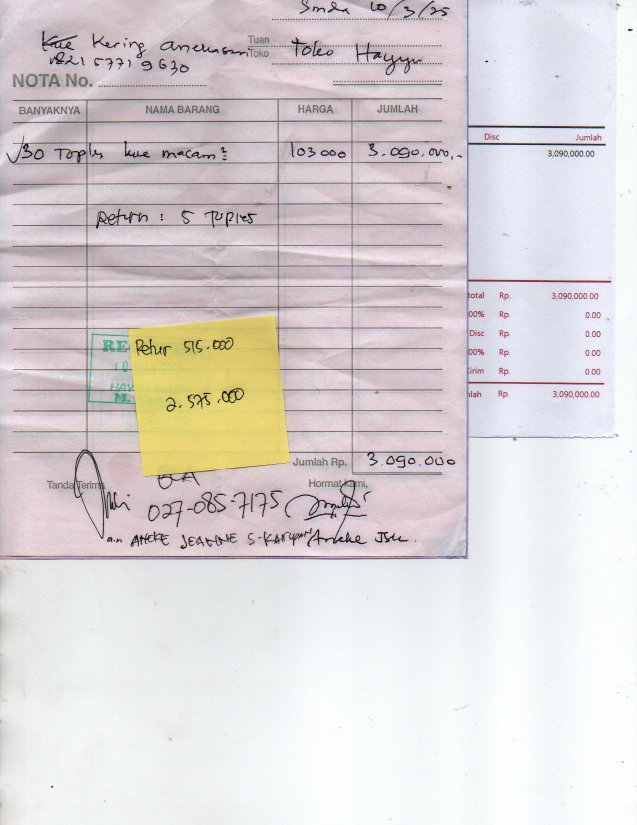 Smda 10/3/25
Kue Kering anekasari
Tuan
Toko
Toko Hayyu
0821 5771 9630
NOTA No.
BANYAKNYA NAMA BARANG HARGA JUMLAH
√30 Toples kue macam² 103000 3.090.000,-
Return : 5 Toples
RE
10
HAY
M.
Retur 515.000
2.575.000
Jumlah Rp. 3.090.000
Tanda Terima
BCA
Hormat kami,
027-085-7175
a.n ANEKE JEANNE S. Aneke
Disc Jumlah
3,090,000.00
total Rp. 3,090,000.00
00% Rp. 0.00
Disc Rp. 0.00
00% Rp. 0.00
Kirim Rp. 0.00
mlah Rp. 3,090,000.00